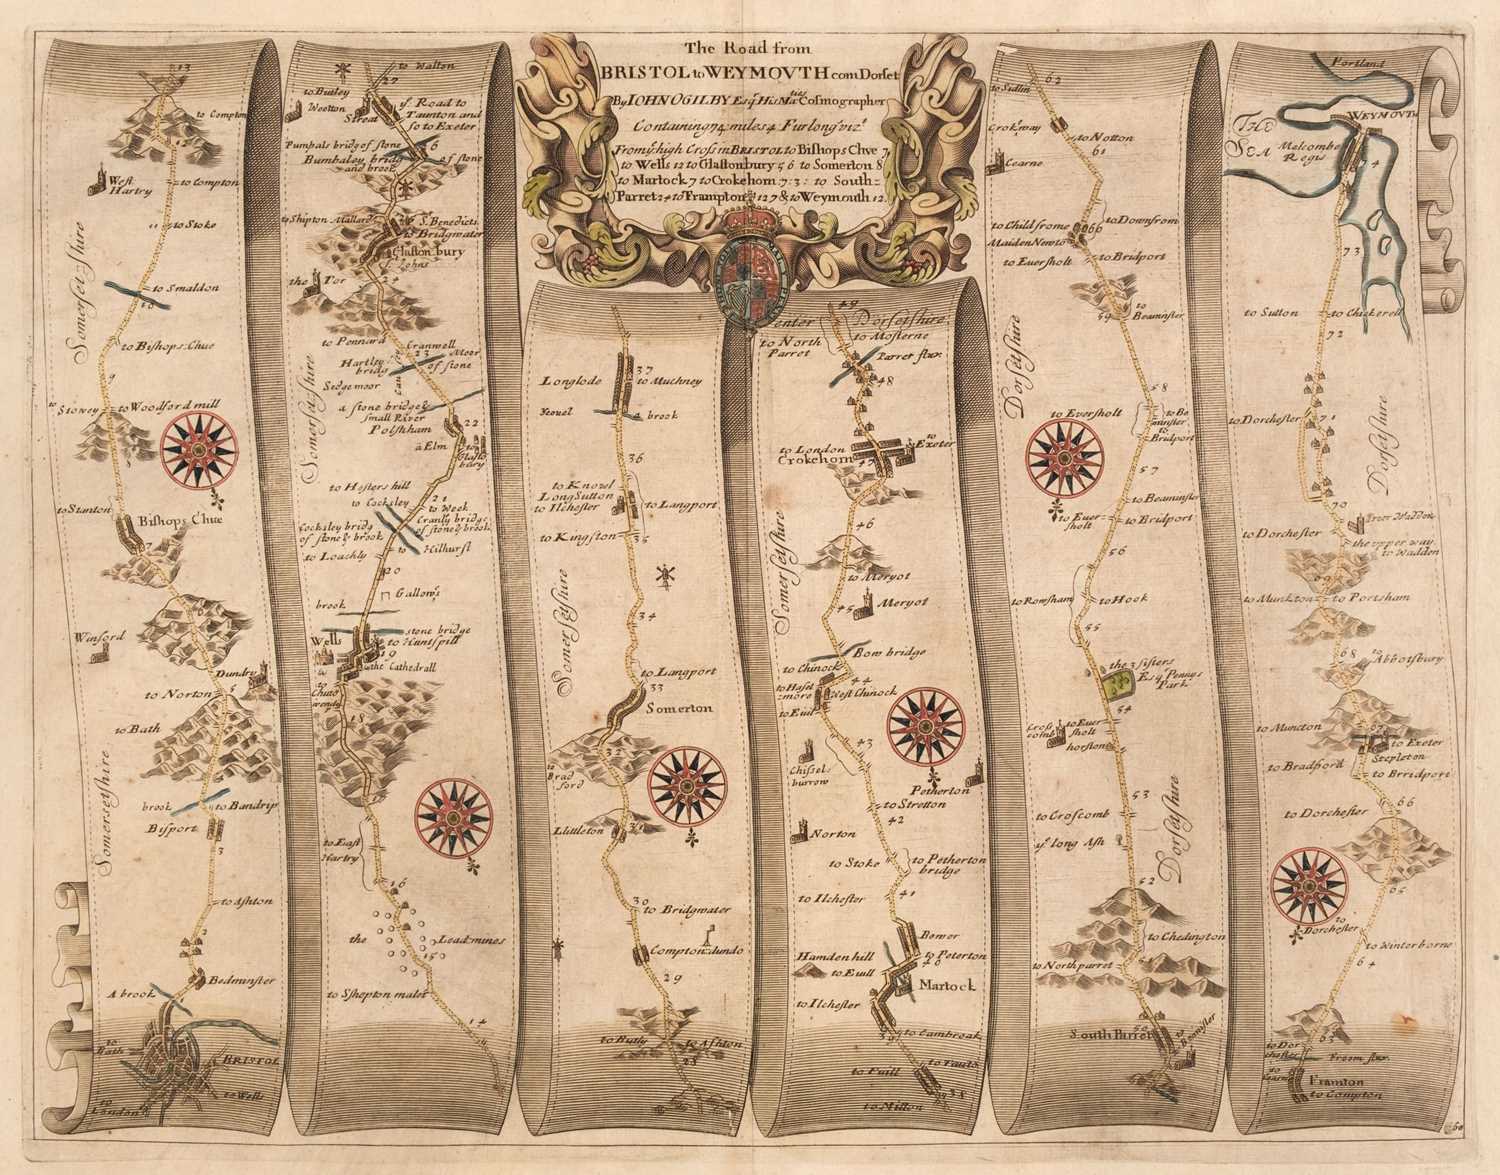 The Road from
BRISTOL to WEYMOVTH com Dorset
By IOHN OGILBY Esqr. His Maties Cosmographer
Containing 74 miles 4 Furlong vizt.
From ye. high Cross in BRISTOL to Bishops Chue 7
to Wells 12 to Glastonbury 5 6 to Somerton 8
to Martock 7 to Crokehorn 7:3: to South=
Parret 2 4 to Frampton 12 7 & to Weymouth 12.
13
to Compton
12
West Hartry
to Compton
11
to Stoke
Somerset=shire
to Smaldon
10
to Bishops: Chue
9
to Stowey
to Woodford mill
to Stanton
Bishops Chue
Winford
Dundry
to Norton
5
to Bath
brook
to Bandrip
Bisport
3
Somersetshire
to Ashton
2
Bedminster
A brook
to Bath
BRISTOL
to Wells
to London
to Walton
27
to Butley
Wootton
Street
ye. Road to
Taunton and
so to Exeter
Pumpals bridg of stone
26
Bumbaley bridg
and brook
of stone
to Shipton Mallard
St. Benedicts
to Bridgwater
Glaston bury
St. Johns
the Tor
to Pennard
Cranwell
23
Moor
Hartley
bridg
of stone
Causey
Sedge moor
a stone bridg &
small River
Polsham
22
a Elm
to Glasto
bury
Somersetshire
to Hosters hill
21
to Cocksley
to Week
Cocksley bridg
of stone & brook
Cranly bridg
of stone & brook
to Loachly
to Hilhurst
20
Gallows
brook
stone bridge
to Huntspill
Wells
19
the Cathedrall
18
to East
Hartry
16
the
Lead=mines
15
to Sshepton malet
14
37
Longlode
to Muchney
Yeovel
brook
36
to Knovel
Long Sutton
to Ilchester
to Langport
to Kingston
35
34
Somersetshire
to Langport
33
Somerton
32
to Brad
ford
Llittleton
31
30
to Bridgwater
Compton: dundo
29
to Butly
to Ashton
28
49
enter
Dorsetshire
to North
Parret
to Mosterne
Parret flur.
48
to Exeter
to London
Crokehorn
47
46
Somersetshire
to Meryot
45
Meryot
Bow bridge
to Chinock
44
to Hasel
more
West Chinock
to Evil
43
Chissel
burrow
Petherton
to Stretton
42
Norton
to Stoke
to Petherton
bridge
41
to Ilchester
Bower
Hamden hill
to Peterton
40
to Evill
Martock
to Ilchester
to Lambroak
39
to Fauld
to Evill
38
to Milton
62
to Sidlin
Crokway
to Notton
61
Cearne
to Child frome
to Downfrom
Maiden Newto
to Eversholt
to Bridport
to
Beaminster
59
Dorsetshire
58
to Eversholt
to Be
minster
to
Bridport
57
to Beaminster
to Ever
sholt
to Bridport
56
to Rowsham
to Hook
55
the 3 sisters
Esqr. Pennys
Park
54
Cross
comb
to Ever
sholt
horston
53
to Croscomb
ye. long Ash
Dorsetshire
52
to Chedington
to North parret
51
50
South Parret
to
Beminster
Portland
THE
SEA
WEYMOUTH
Melcombe
Regis
74
73
to Sutton
to Chickerell
72
to Dorchester
71
Dorsetshire
70
to Dorchester
the upper way
to Wadden
69
to Munkton
to Portsham
68
to Abbotsbury
to Muncton
67
to Exeter
Stepleton
to Bradford
to Brridport
66
to Dorchester
65
to
Dorchester
to Winterborne
64
63
to Dor
chester
Froom flur.
to Cearn
Framton
to Compton
60